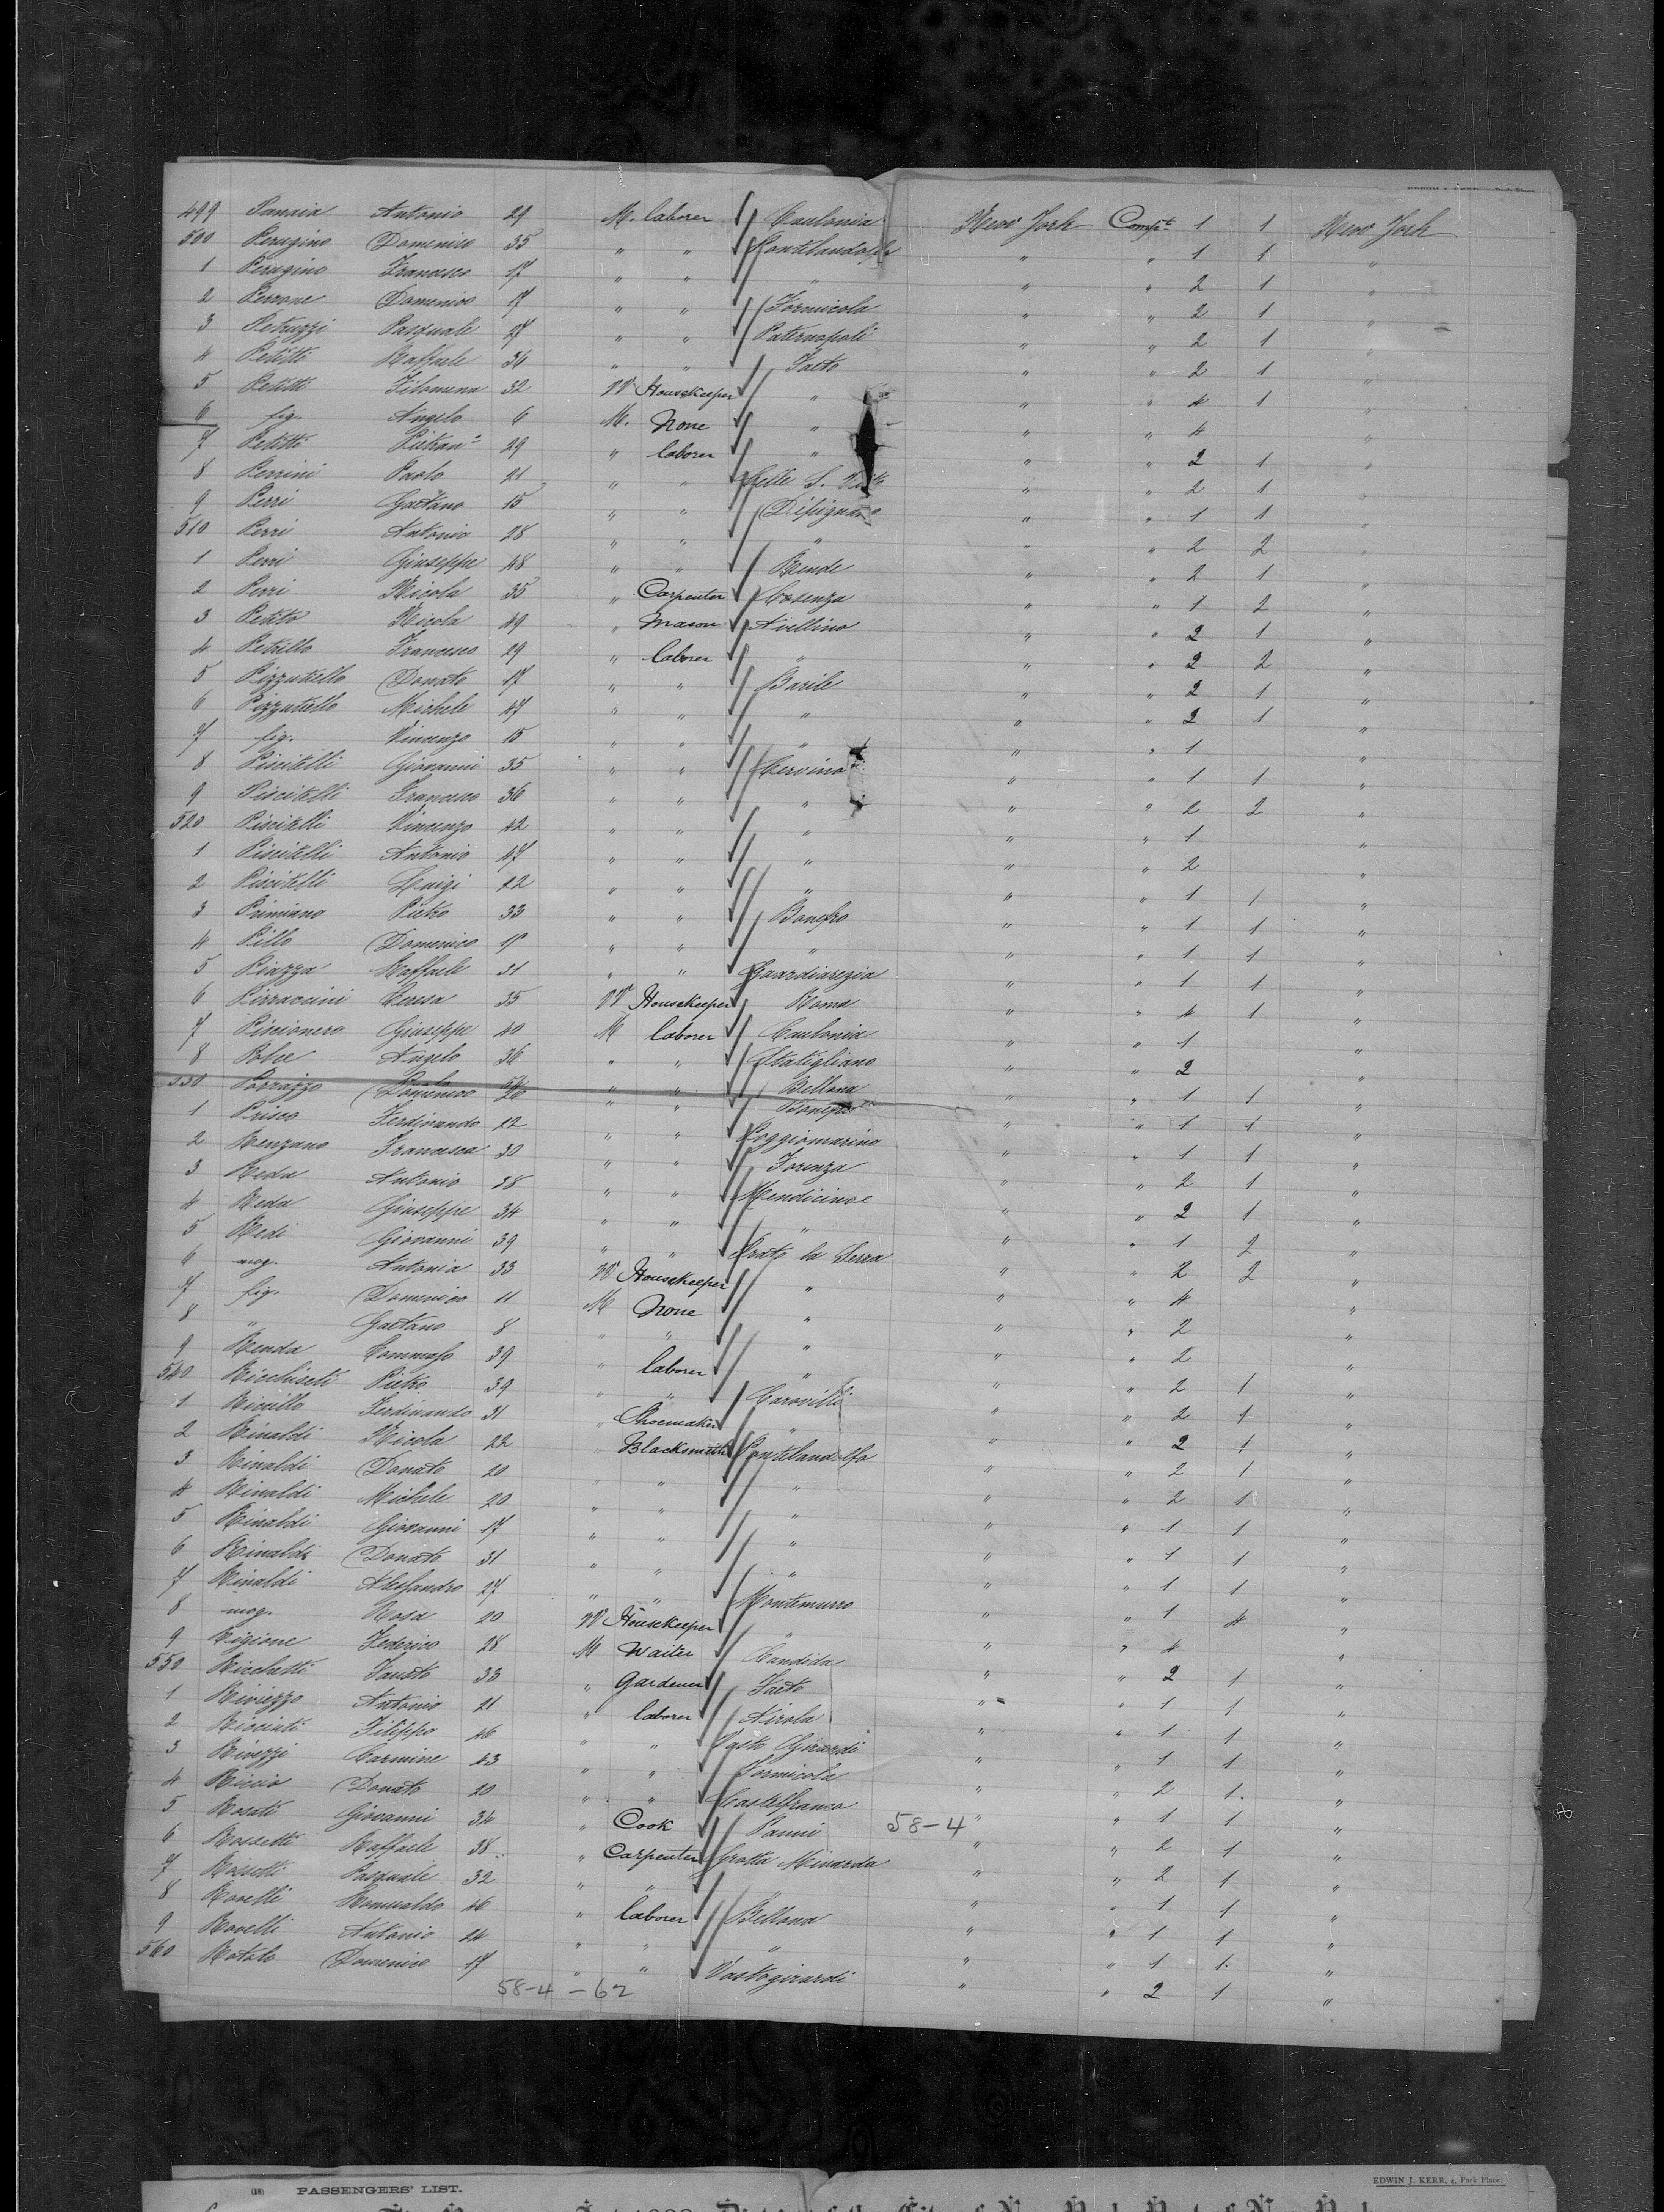 499 Antonio 29 M. laborer Caulonia New York Compt 1 1 New York
500 Perugino Domenico 35 " " Pontelandolfo " " 1 1 "
1 Perugino Francesco 17 " " " " " 2 1 "
2 Perrone Domenico 17 " " Formicola " " 2 1 "
3 Petruzzi Pasquale 27 " " Paternopoli " " 2 1 "
4 Petitti Raffaele 34 " " Faeto " " 2 1 "
5 Petitti Filomena 32 W Housekeeper " " " 4 1 "
6 fig. Angelo 6 M. None " " " 4 "
7 Petitti 29 " laborer " " " 2 1 "
8 Perrini Paolo 21 " " Celle S. Vito " " 2 1 "
9 Perri Gaetano 15 " " Dipignano " " 1 1 "
510 Perri Antonio 28 " " " " " 2 2 "
1 Perri Giuseppe 48 " " Rende " " 2 1 "
2 Perri Nicola 35 " Carpenter Cosenza " " 1 2 "
3 Petito Nicola 49 " Mason Avellino " " 2 1 "
4 Petrillo Francesco 29 " laborer " " " 2 2 "
5 Pizzutello Donato 17 " " Barile " " 2 1 "
6 Pizzutello Michele 47 " " " " " 2 1 "
7 fig. Vincenzo 15 " " " " " 1 "
8 Piscitelli Giovanni 35 " " Cervino " " 1 1 "
9 Piscitelli Francesco 36 " " " " " 2 2 "
520 Piscitelli Vincenzo 42 " " " " " 1 "
1 Piscitelli Antonio 47 " " " " " 2 "
2 Piscitelli Luigi 22 " " " " " 1 1 "
3 Primiano Pietro 33 " " Bonefro " " 1 1 "
4 Pillo Domenico " " " " " 1 1 "
5 Piazza Raffaele 31 " " Guardiaregia " " 1 1 "
6 Pirraccini Teresa 35 W Housekeeper Roma " " 4 1 "
7 Piscionero Giuseppe 40 M laborer Caulonia " " 1 "
8 Polce Angelo 36 " " " " 2 "
" " Bellona
530 Porrazzo Domenico 26 " " Bonefro " " 1 1 "
1 Prisco Ferdinando 22 " " Poggiomarino " " 1 1 "
2 Renzano Francesca 30 " " Forenza " " 1 1 "
3 Reda Antonio 38 " " Mendicino " " 2 1 "
4 Reda Giuseppe 34 " " " " " 2 1 "
5 Redi Giovanni 39 " " Prato la Serra " " 1 2 "
6 mog. Antonia 33 W Housekeeper " " " 2 2 "
7 fig. Domenico 11 M None " " " 4 "
8 " Gaetano 8 " " " " " 2 "
9 Renda Tommaso 39 " laborer " " " 2 "
540 Ricchiseti Pietro 39 " " Carovilli " " 2 1 "
1 Riccillo Ferdinando 31 " Shoemaker " " " 2 1 "
2 Rinaldi Nicola 22 " Blacksmith Pontelandolfo " " 2 1 "
3 Rinaldi Donato 20 " " " " " 2 1 "
4 Rinaldi Michele 20 " " " " " 2 1 "
5 Rinaldi Giovanni 17 " " " " " 1 1 "
6 Rinaldi Donato 31 " " " " " 1 1 "
7 Rinaldi Alessandro 27 " " Montemurro " " 1 1 "
8 mog. Rosa 20 W Housekeeper " " " 1 4 "
9 Rigione Federico 28 M Waiter Candida " " 4 "
550 Ricchetti Fausto 33 " Gardener Faeto " " 2 1 "
1 Riviezzo Antonio 21 " laborer Airola " " 1 1 "
2 Ricciuti Filippo 46 " " Vasto Girardi " " 1 1 "
3 Carmine 43 " " Formicola " " 1 1 "
4 Riccio Donato 20 " " Castelfranco " " 2 1 "
5 Rosati Giovanni 34 " Cook Panni 58-4 " " 1 1 "
6 Rossetti Raffaele 38 " Carpenter Grotta Minarda " " 2 1 "
7 Rossetti Pasquale 32 " " " " " 2 1 "
8 Rovelli Romualdo 46 " laborer Bellona " " 1 1 "
9 Rovelli Antonio 24 " " " " " 1 1 "
560 Rotolo Domenico 17 " " Vastogirardi " " 1 1 "
58-4-62 " " 2 1 "
(18) PASSENGERS' LIST. EDWIN J. KERR, 4, Park Place.